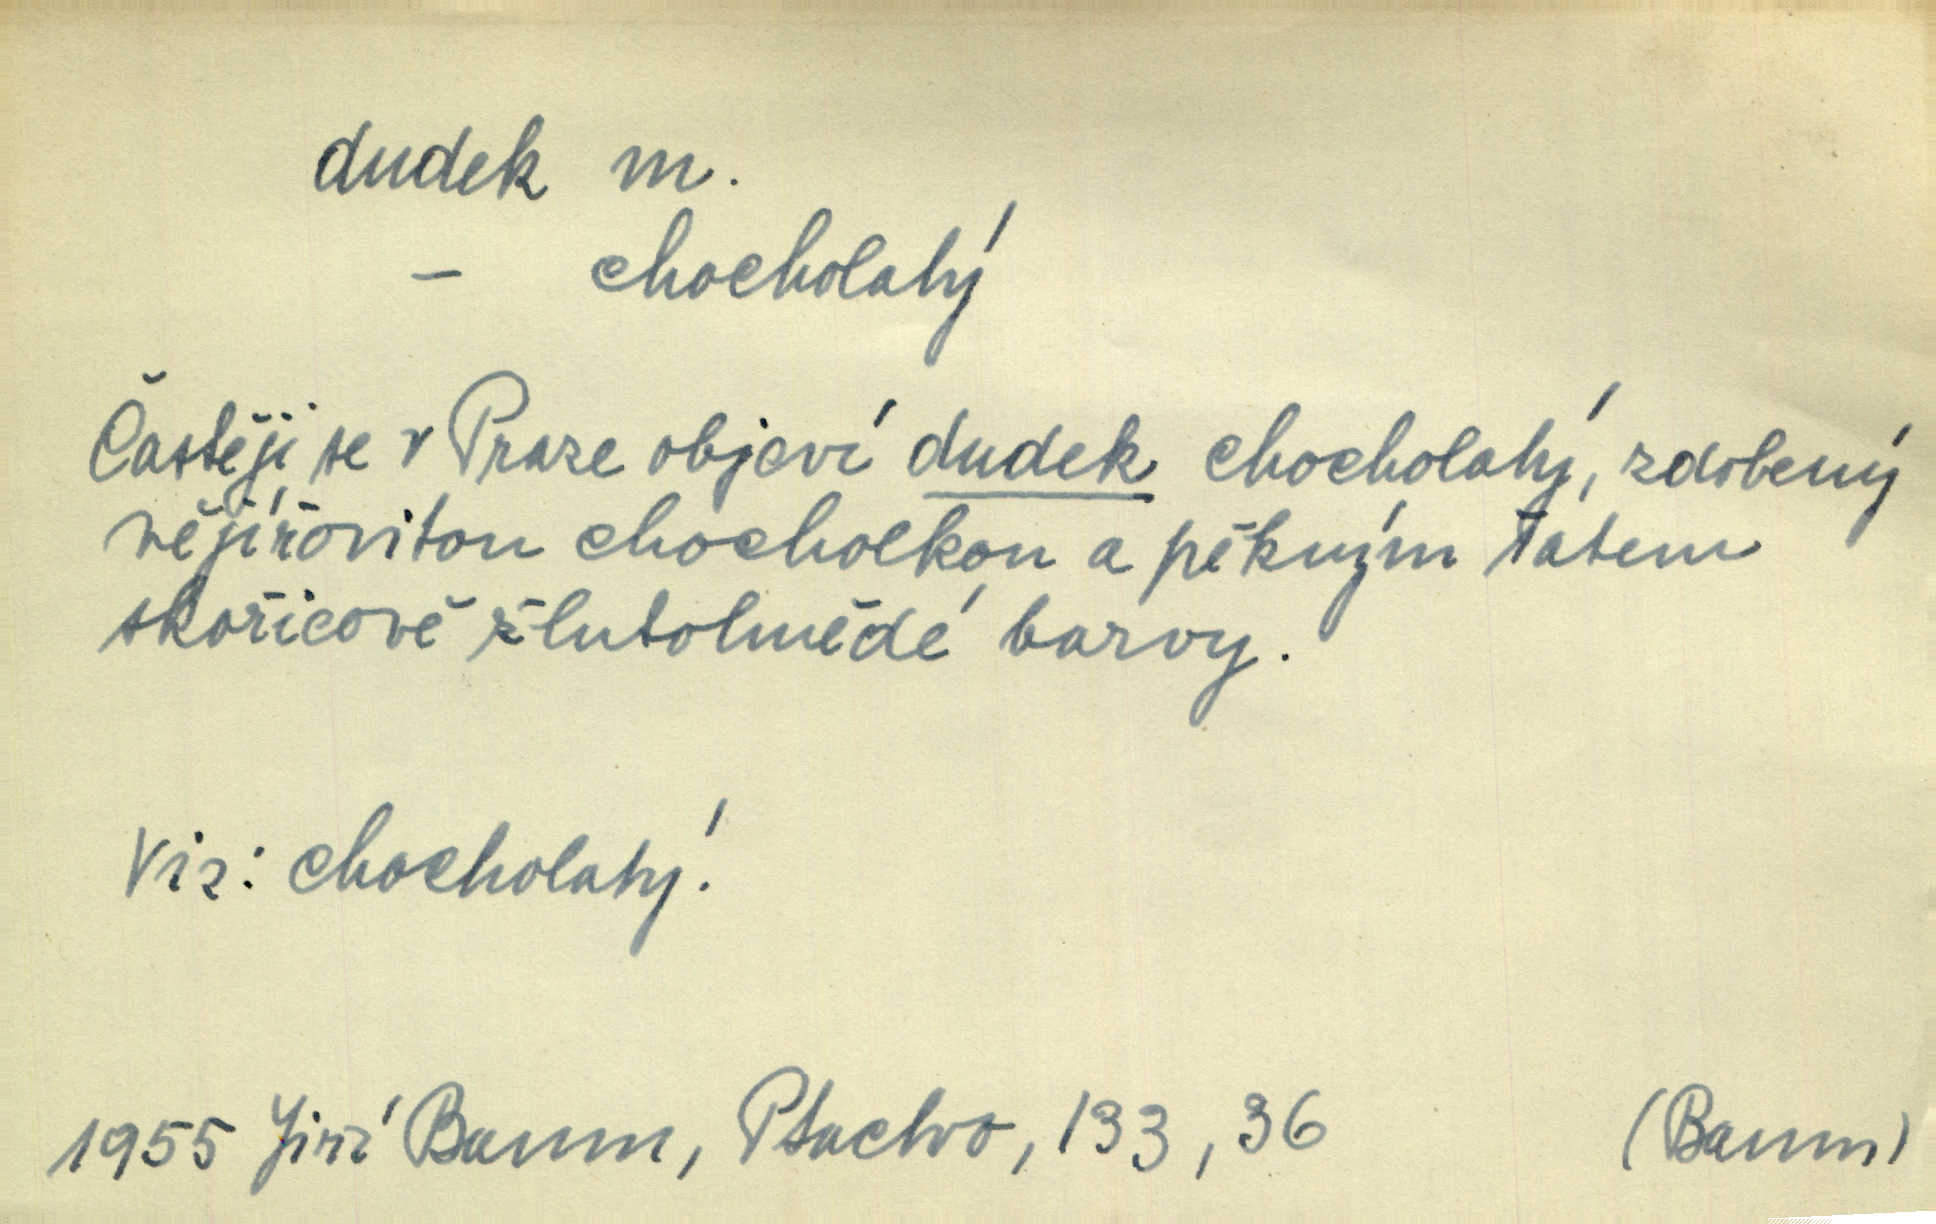 dudek m.
– chocholatý
Častěji se v Praze objeví dudek chocholatý, zdobený
vějířovitou chocholkou a pěkným šatem
skořicově žlutohnědé barvy.
Viz: chocholatý.
1955 Jiří Baum, Ptactvo, 133, 36 (Baum)